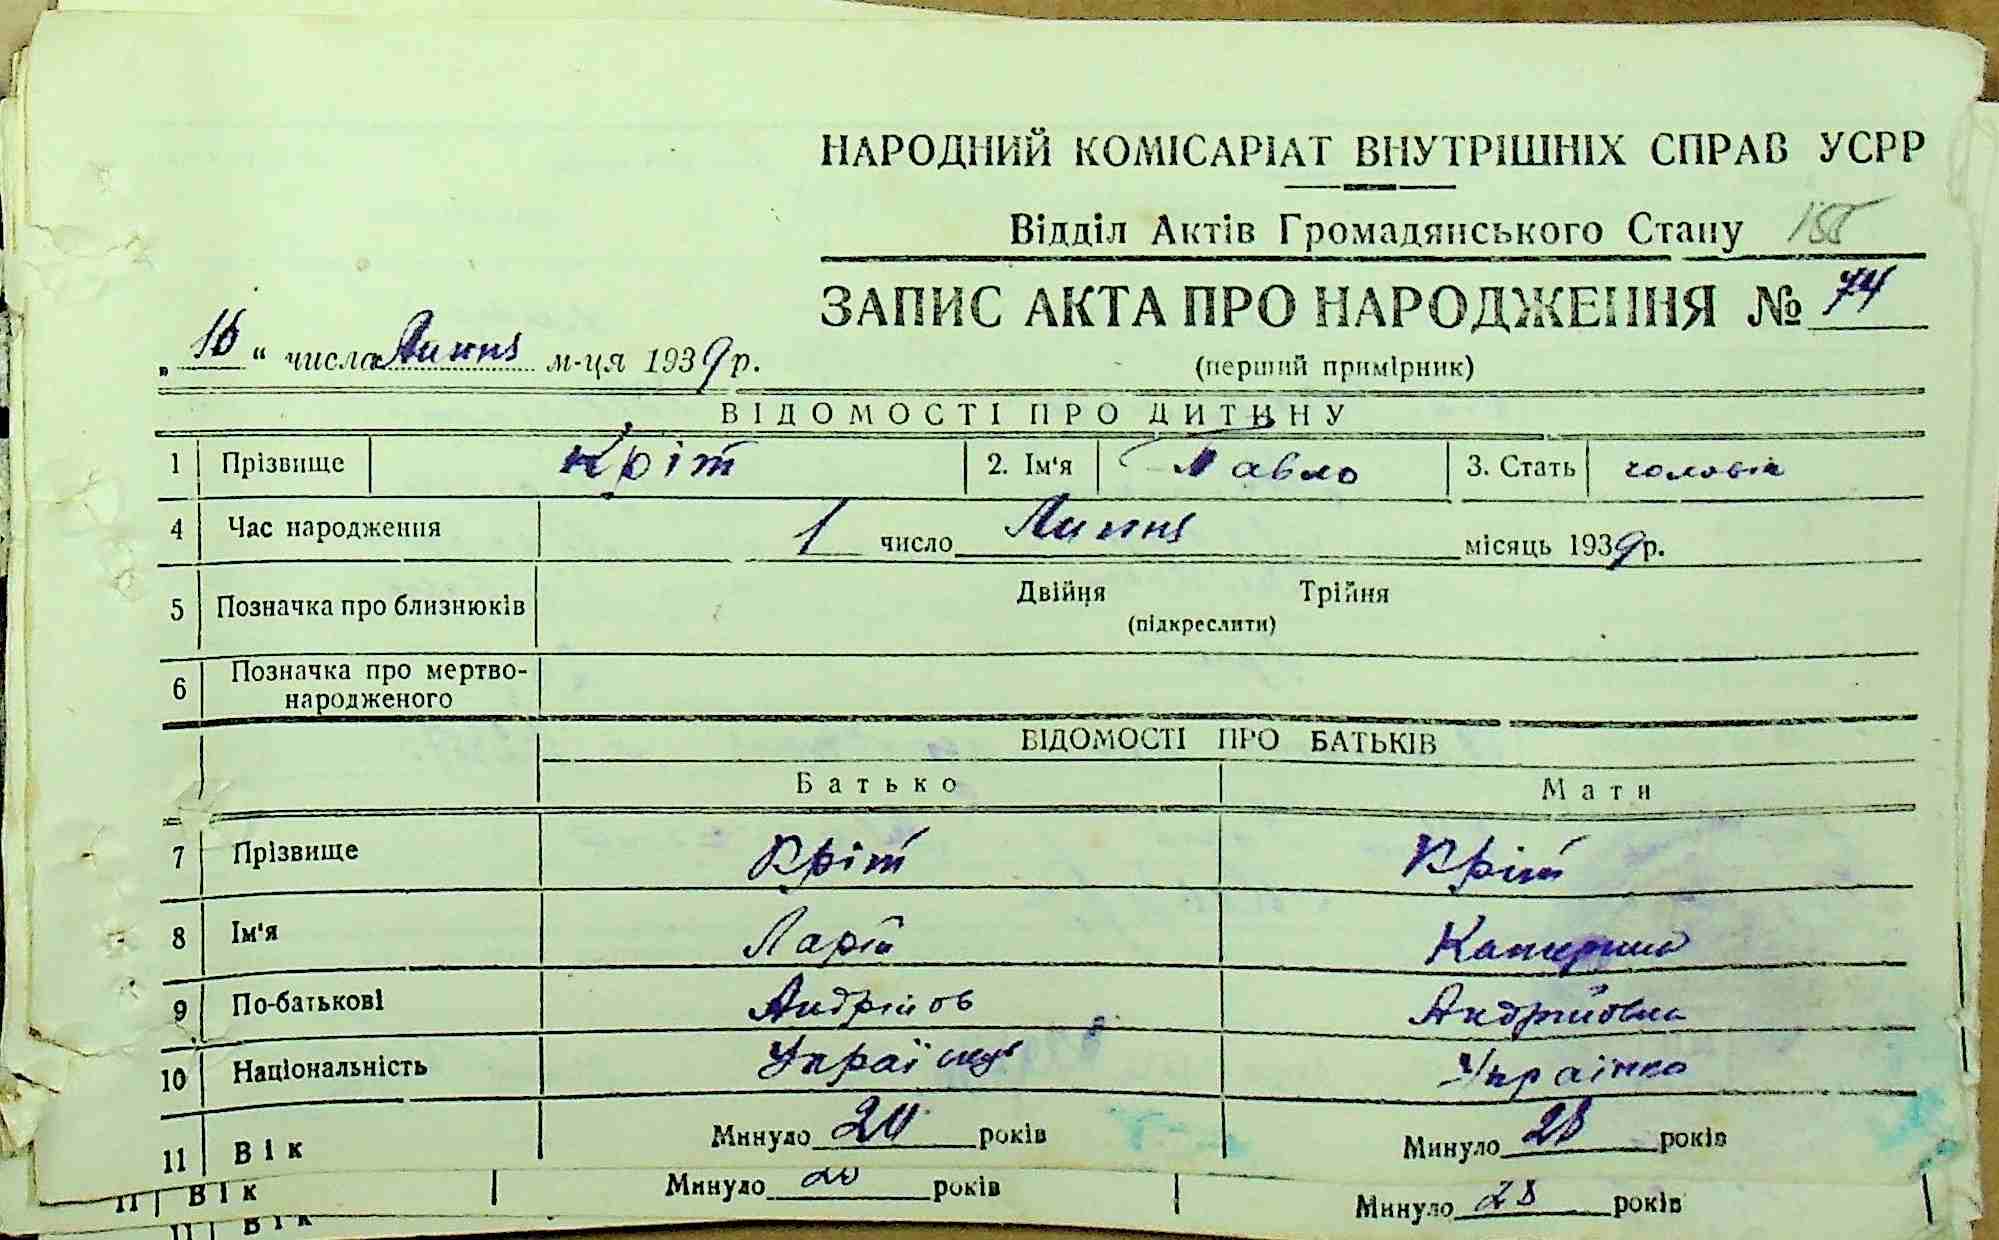 НАРОДНИЙ КОМІСАРІАТ ВНУТРІШНІХ СПРАВ УСРР
Відділ Актів Громадянського Стану 155
ЗАПИС АКТА ПРО НАРОДЖЕННЯ № 74
(перший примірник)
„16“ числа Липня м-ця 1939 р.
ВІДОМОСТІ ПРО ДИТИНУ
1 Прізвище Кріт 2. Ім'я Павло 3. Стать чоловіч
4 Час народження 1 число Липня місяць 1939 р.
5 Позначка про близнюків Двійня Трійня
(підкреслити)
6 Позначка про мертво-
народженого
ВІДОМОСТІ ПРО БАТЬКІВ
Батько Мати
7 Прізвище Кріт Кріт
8 Ім'я Катерина
9 По-батькові Андрійов Андрійовна
10 Національність Українець Українка
11 Вік Минуло років Минуло 28 років
11 Вік Минуло років Минуло 28 років
11 Вік